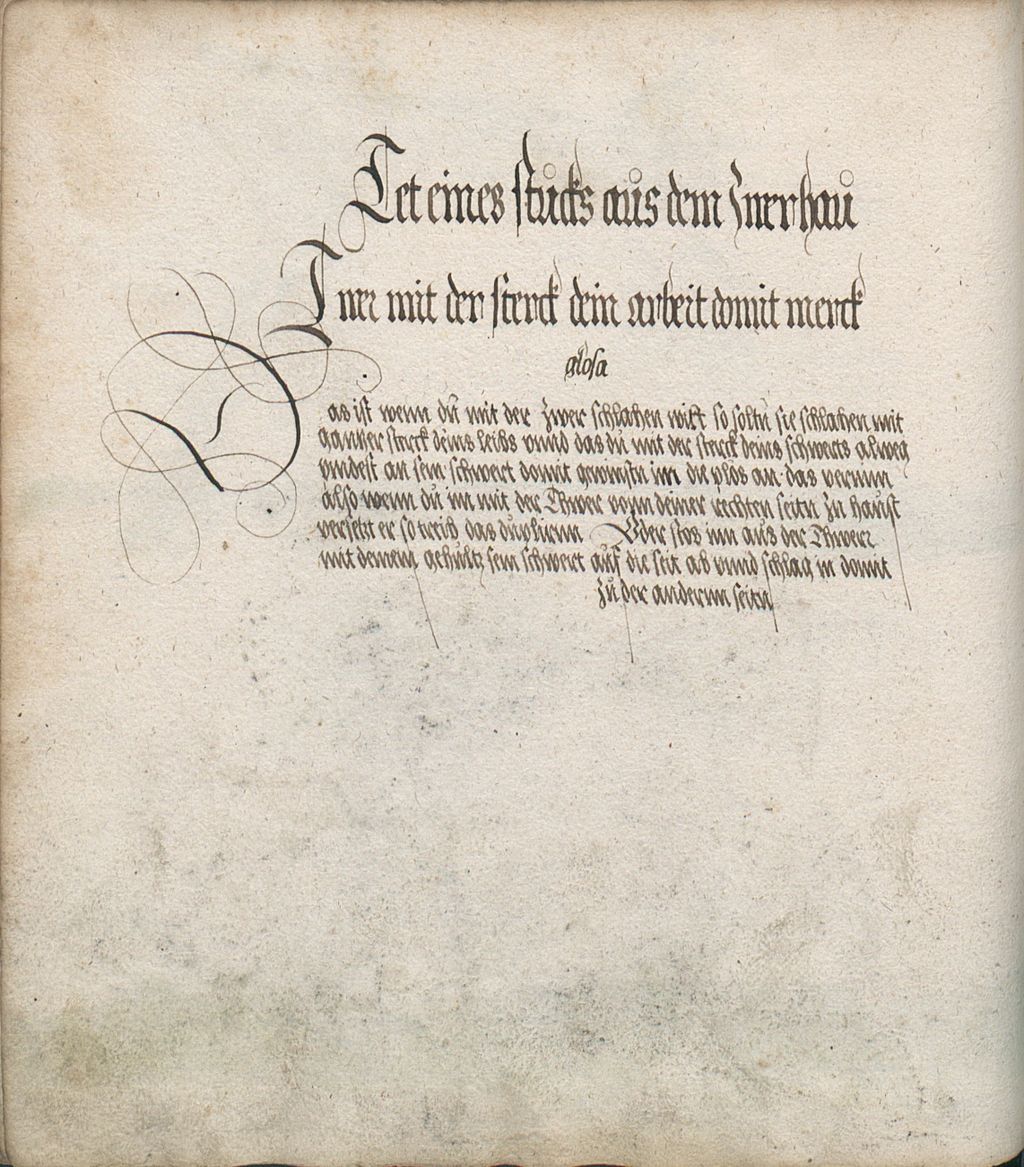 Tet eines stucks aus dem Zwerhau
Zwer mit der sterck dein arbeit domit merck
glosa
Das ist wenn du mit der zwer schlachen wilt so soltu sie schlachen mit
gantzer sterck deins leibs vnnd das du mit der sterck deins schwerts alweg
vindest an sein schwert domit gewinstu im die plos an das vernim
also wenn du im mit der Thwer vonn deiner rechten seitn zu haust
versetzt er so treib das duplirnn Oder stos inn aus der Thwerr
mit deinem gehultz sein schwert auf die seit ab vnnd schlag in domit
zu der andernn seitn